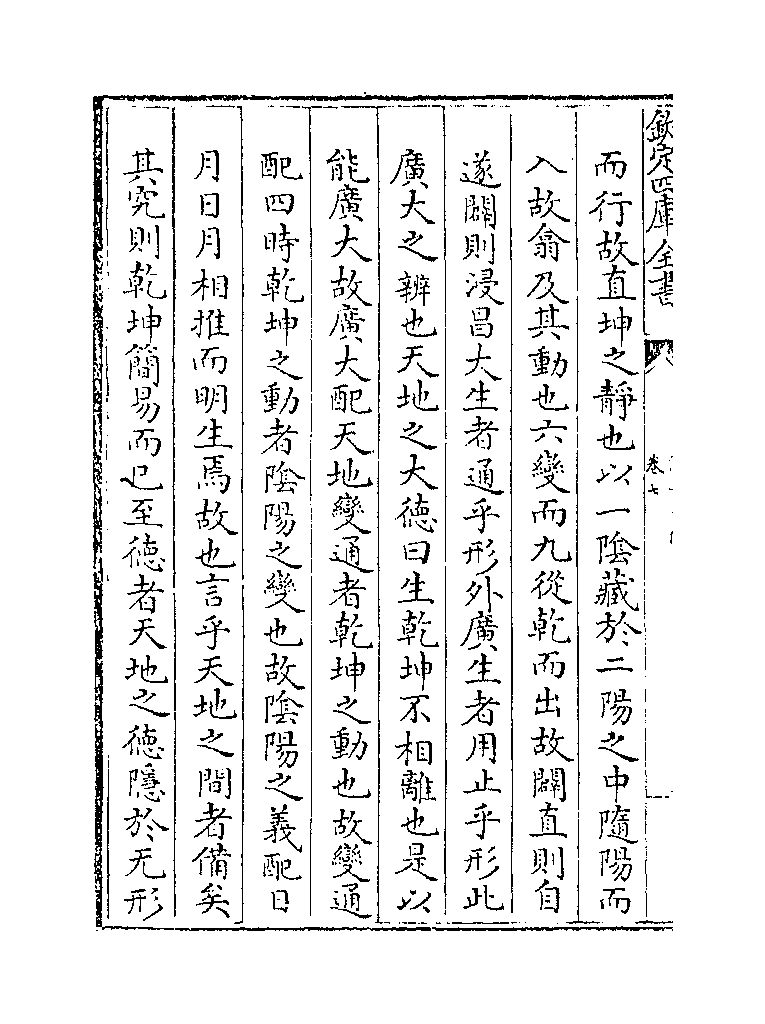 欽定四庫全書
卷七
而行故直坤之靜也以一陰藏於二陽之中隨陽而
入故翕及其動也六變而九從乾而出故闢直則自
遂闢則浸昌大生者通乎形外廣生者用止乎形此
廣大之辨也天地之大德曰生乾坤不相離也是以
能廣大故廣大配天地變通者乾坤之動也故變通
配四時乾坤之動者陰陽之變也故陰陽之義配日
月日月相推而明生焉故也言乎天地之間者備矣
其究則乾坤簡易而已至德者天地之德隱於无形